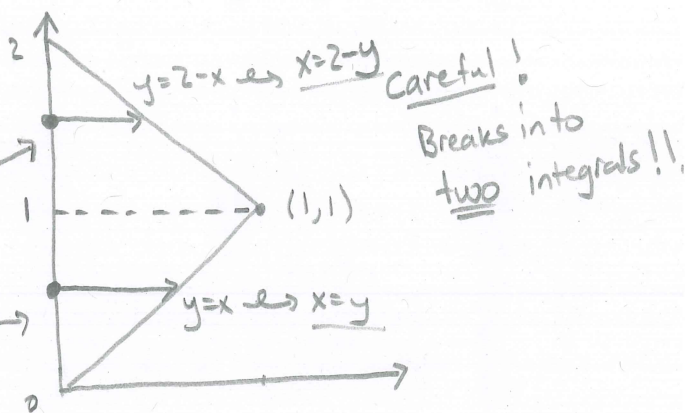 2
y=2-x ↔ x=2-y
Careful!
Breaks into
two integrals!!
1
(1,1)
y=x ↔ x=y
0